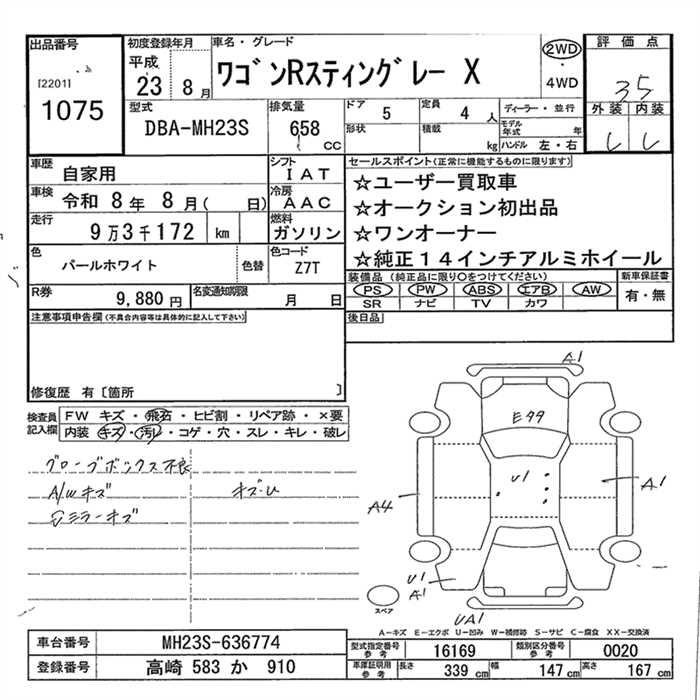 出品番号
[2201]
1075
初度登録年月
平成
23 8月
車名・グレード
ワゴンRスティングレー X
2WD
・
4WD
評価点
3.5
外装 内装
型式
DBA-MH23S
排気量
658
CC
ドア 5
形状
定員 4 人
積載 kg
ディーラー・並行
モデル年式 年
ハンドル 左・右
車歴
自家用
シフト
IAT
車検
令和 8年 8月( 日)
冷房
AAC
走行
9万3千172 km
燃料
ガソリン
色
パールホワイト
色替
色コード
Z7T
R券
9,880円
名変通知期限
月 日
セールスポイント(正常に機能するものに限ります)
☆ユーザー買取車
☆オークション初出品
☆ワンオーナー
☆純正14インチアルミホイール
装備品(純正品に限り○をつけてください)
PS PW ABS エアB AW
SR ナビ TV カワ
新車保証書
有・無
後日品
注意事項申告欄(不具合内容等は具体的に記入して下さい)
修復歴 有〔箇所 〕
検査員記入欄
FW キズ・飛石・ヒビ割・リペア跡・×要
内装 キズ・汚レ・コゲ・穴・スレ・キレ・破レ
グローブボックス不良
A/Wキズ
ミラーキズ
A1
E99
U1
A4
A1
U1
A1
UA1
スペア
A-キズ E-エクボ U-凹み W-補修跡 S-サビ C-腐食 XX-交換済
車台番号
MH23S-636774
登録番号
高崎 583 か 910
型式指定番号
参考
16169
類別区分番号
参考
0020
車庫証明用
参考
長さ 339 cm 幅 147 cm 高さ 167 cm